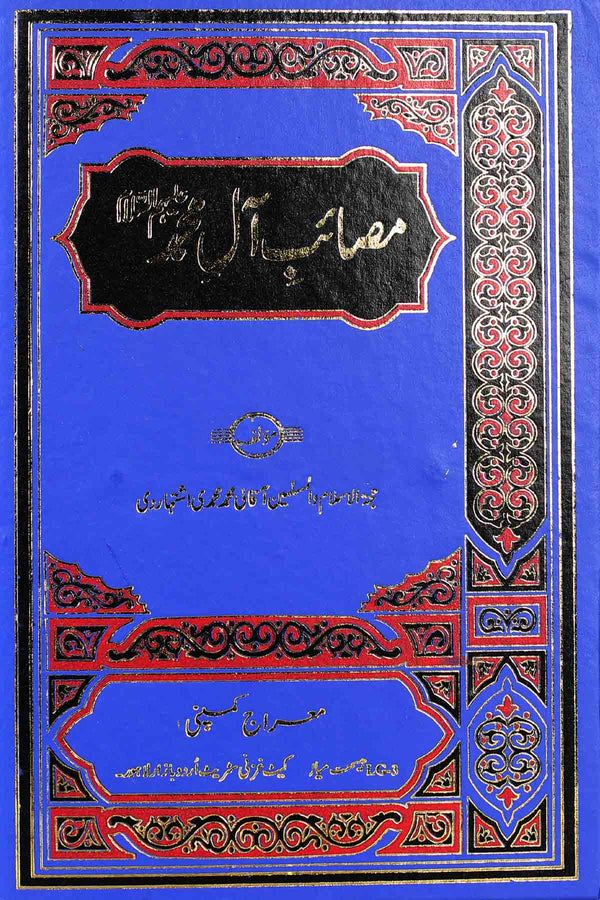 مصائبِ آلِ محمدؐ علیہم السلام
مؤلف
حجۃ الاسلام والمسلمین آقائی محمد محمدی اشتہاردی
معراج کمپنی
LG-3 بیسمنٹ میاں مارکیٹ غزنی سٹریٹ اُردو بازار لاہور۔